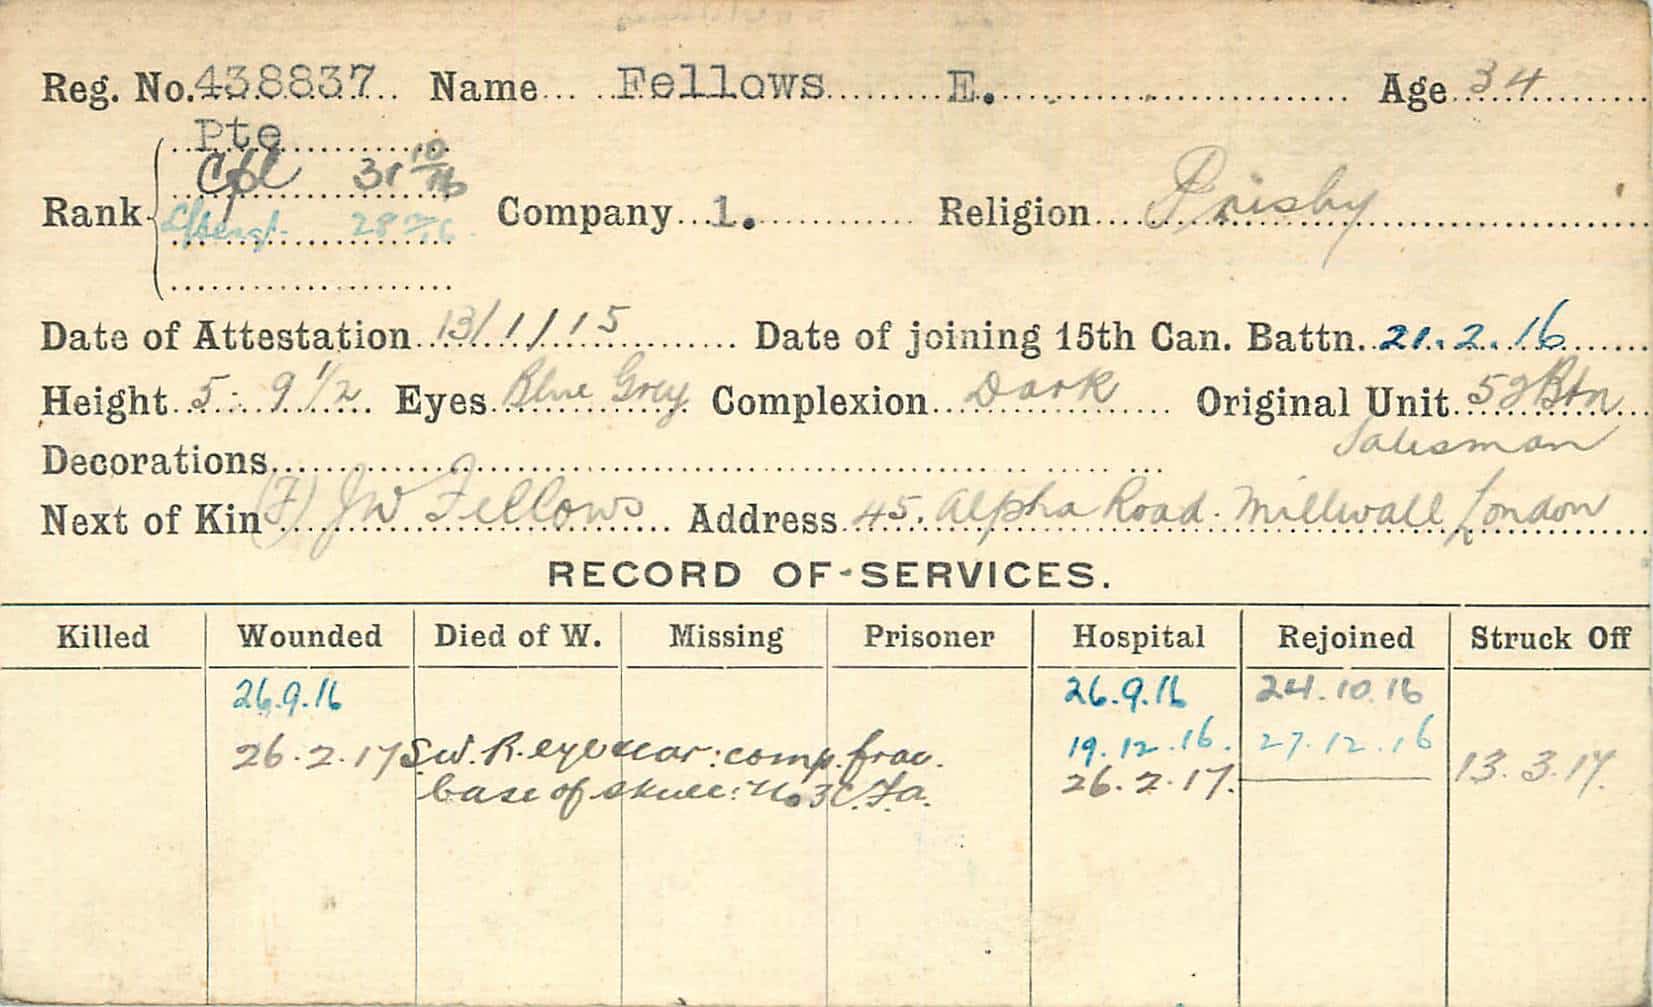 Reg. No. 438837 Name Fellows E. Age 34
Pte
Cpl 31 10/16
Rank L/Sergt. 28 Company 1. Religion Prisby
Date of Attestation 13/1/15 Date of joining 15th Can. Battn. 21.2.16
Height 5. 9 1/2 Eyes Blue Grey Complexion Dark Original Unit 52 Btn
Decorations Salesman
Next of Kin (F) JW Fellows Address 45. Alpha Road. Millwall London
RECORD OF SERVICES.
Killed Wounded Died of W. Missing Prisoner Hospital Rejoined Struck Off
26.9.16 26.9.16 24.10.16
26.2.17 S.W. R. eye : comp. frac. 19.12.16. 27.12.16 13.3.17.
base of skull: No 3 C.F.a. 26.2.17.